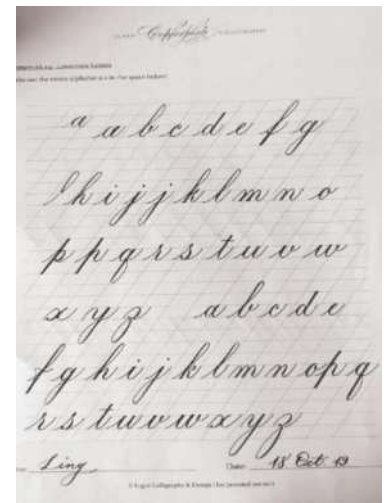 Copperplate
a a b c d e f g
l h i j j k l m n o
p p q r s t u v w
x y z a b c d e
f g h i j k l m n o p q
r s t u v w x y z
Ling Date: 18 Oct 19